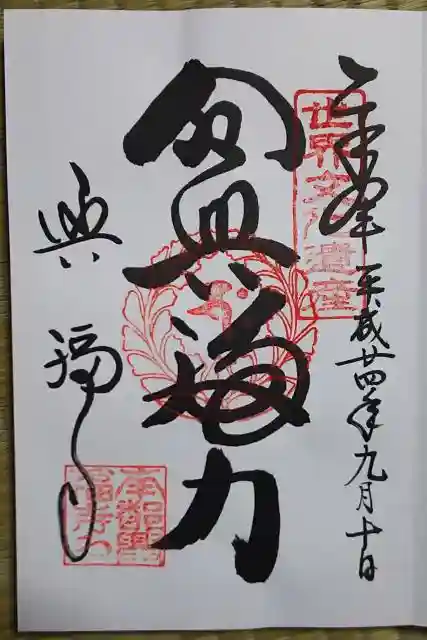 奉拝 平成廿四年九月十日
世界文化遺産
令興福力
興福寺
南都興
福寺